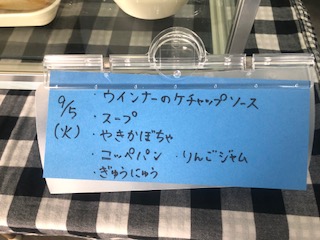 9/5 ・ウインナーのケチャップソース
(火) ・スープ
・やきかぼちゃ
・コッペパン ・りんごジャム
・ぎゅうにゅう